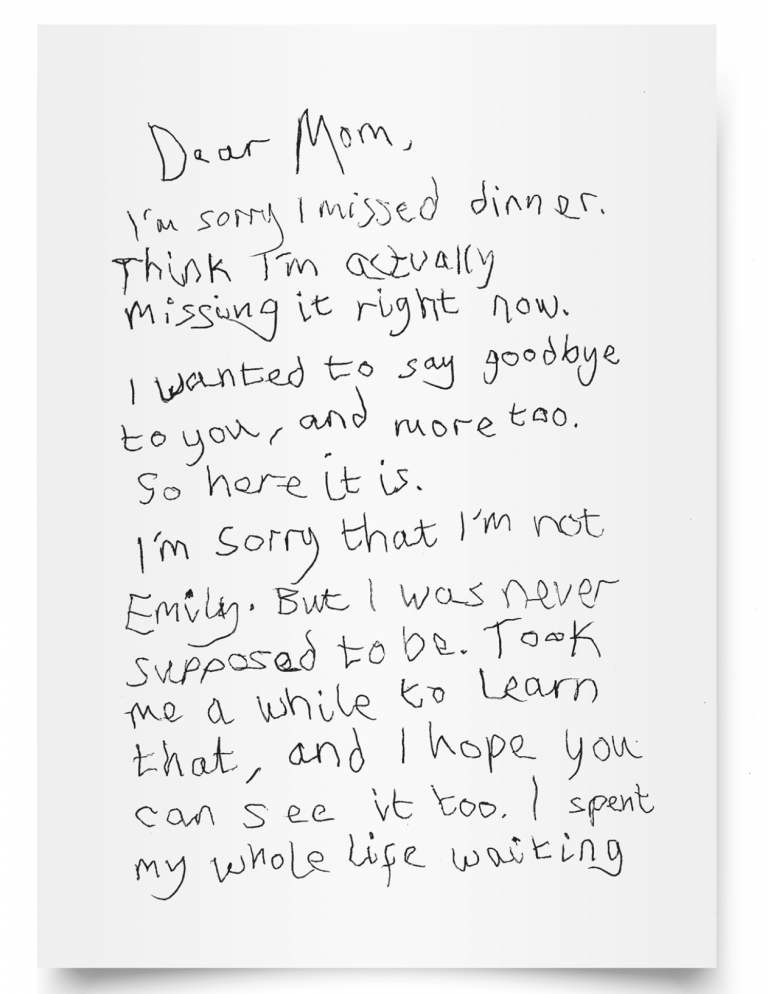 Dear Mom,
I'm sorry I missed dinner.
Think I'm actually
missing it right now.
I wanted to say goodbye
to you, and more too.
So here it is.
I'm sorry that I'm not
Emily. But I was never
supposed to be. Took
me a while to learn
that, and I hope you
can see it too. I spent
my whole life waiting